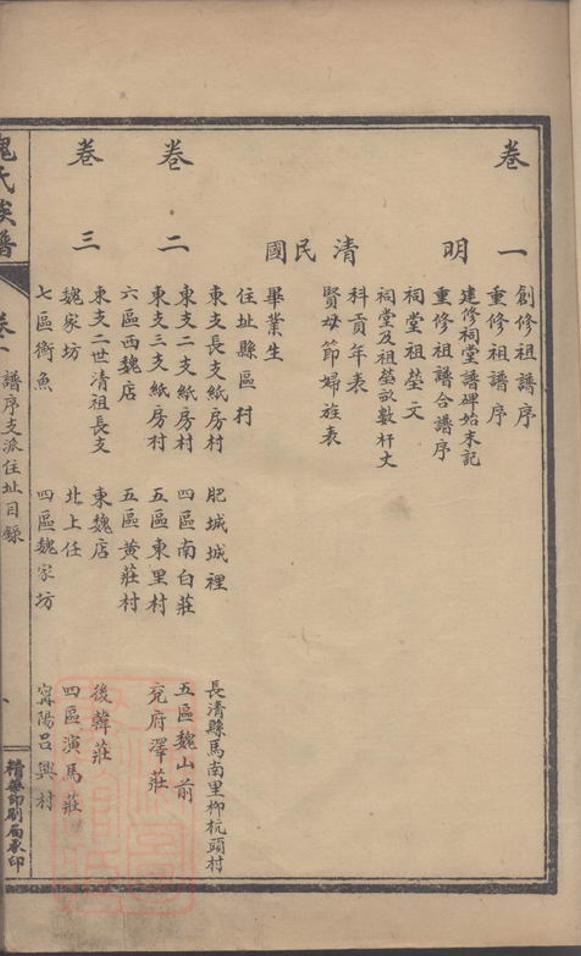 卷一
創修祖譜序
重修祖譜序
明
建修祠堂譜碑始末記
重修祖譜合譜序
祠堂祖塋文
祠堂及祖塋畝數杆丈
清
科貢年表
賢母節婦旌表
民國
畢業生
住址縣區村
卷二
東支長支紙房村 肥城城裡 長清縣馬南里柳杭頭村
東支二支紙房村 四區南白莊 五區魏山前
東支三支紙房村 五區東里村 兗府澤莊
六區西魏店 五區黄莊村
卷三
東支二世清祖長支 東魏店 後韓莊
魏家坊 北上任 四區演馬莊
七區衡魚 四區魏家坊 甯陽呂興村
魏氏族譜
卷一 譜序支派住址目錄
精華印刷局承印